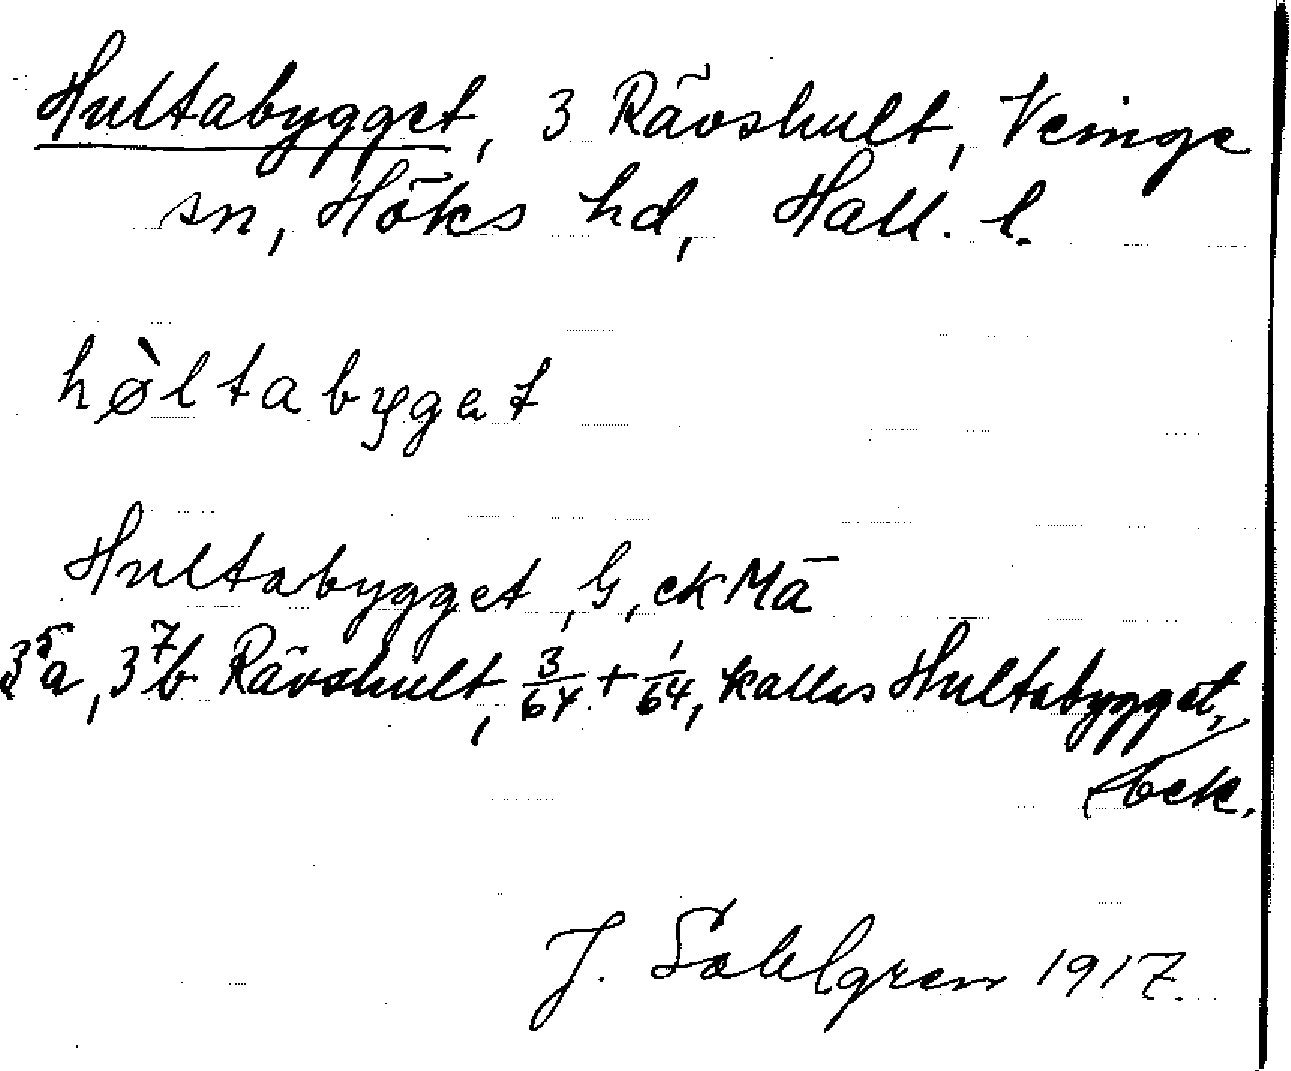 Hultabygget, 3 Rävshult, Veinge
sn, Höks hd, Hall. l.
hø̀ltabyget
Hultabygget, G, ek Mä
3⁵a, 3⁷b Rävshult, 3/64 + 1/64, kallas Hultabygget,
bek.
J. Sahlgren 1917.